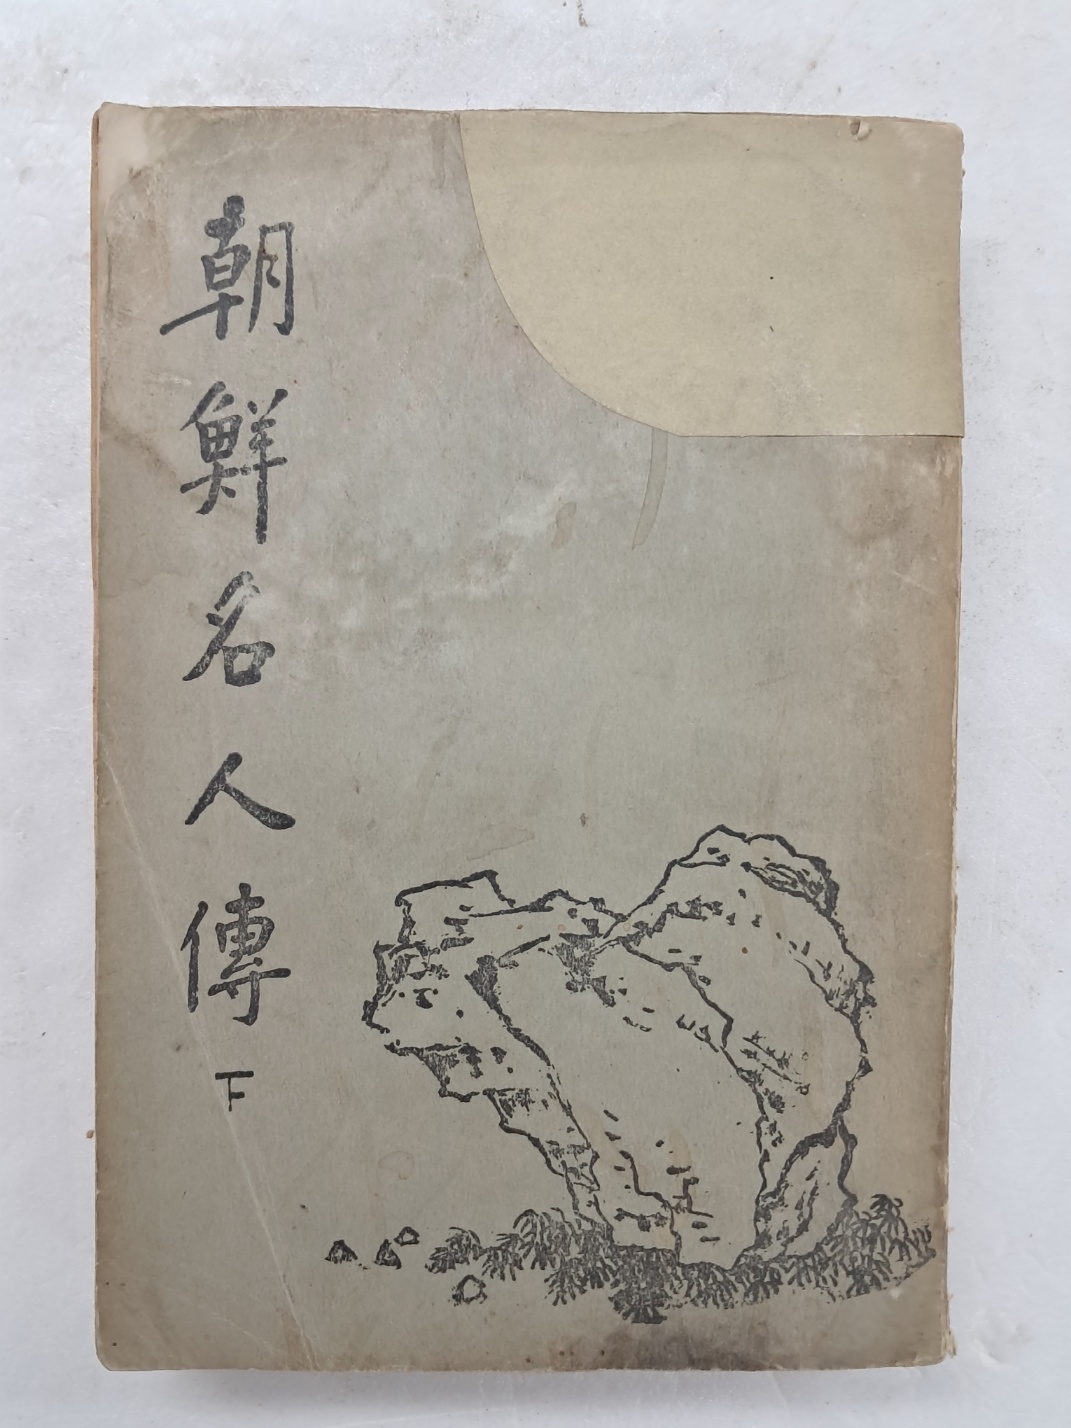 朝鮮名人傳
下